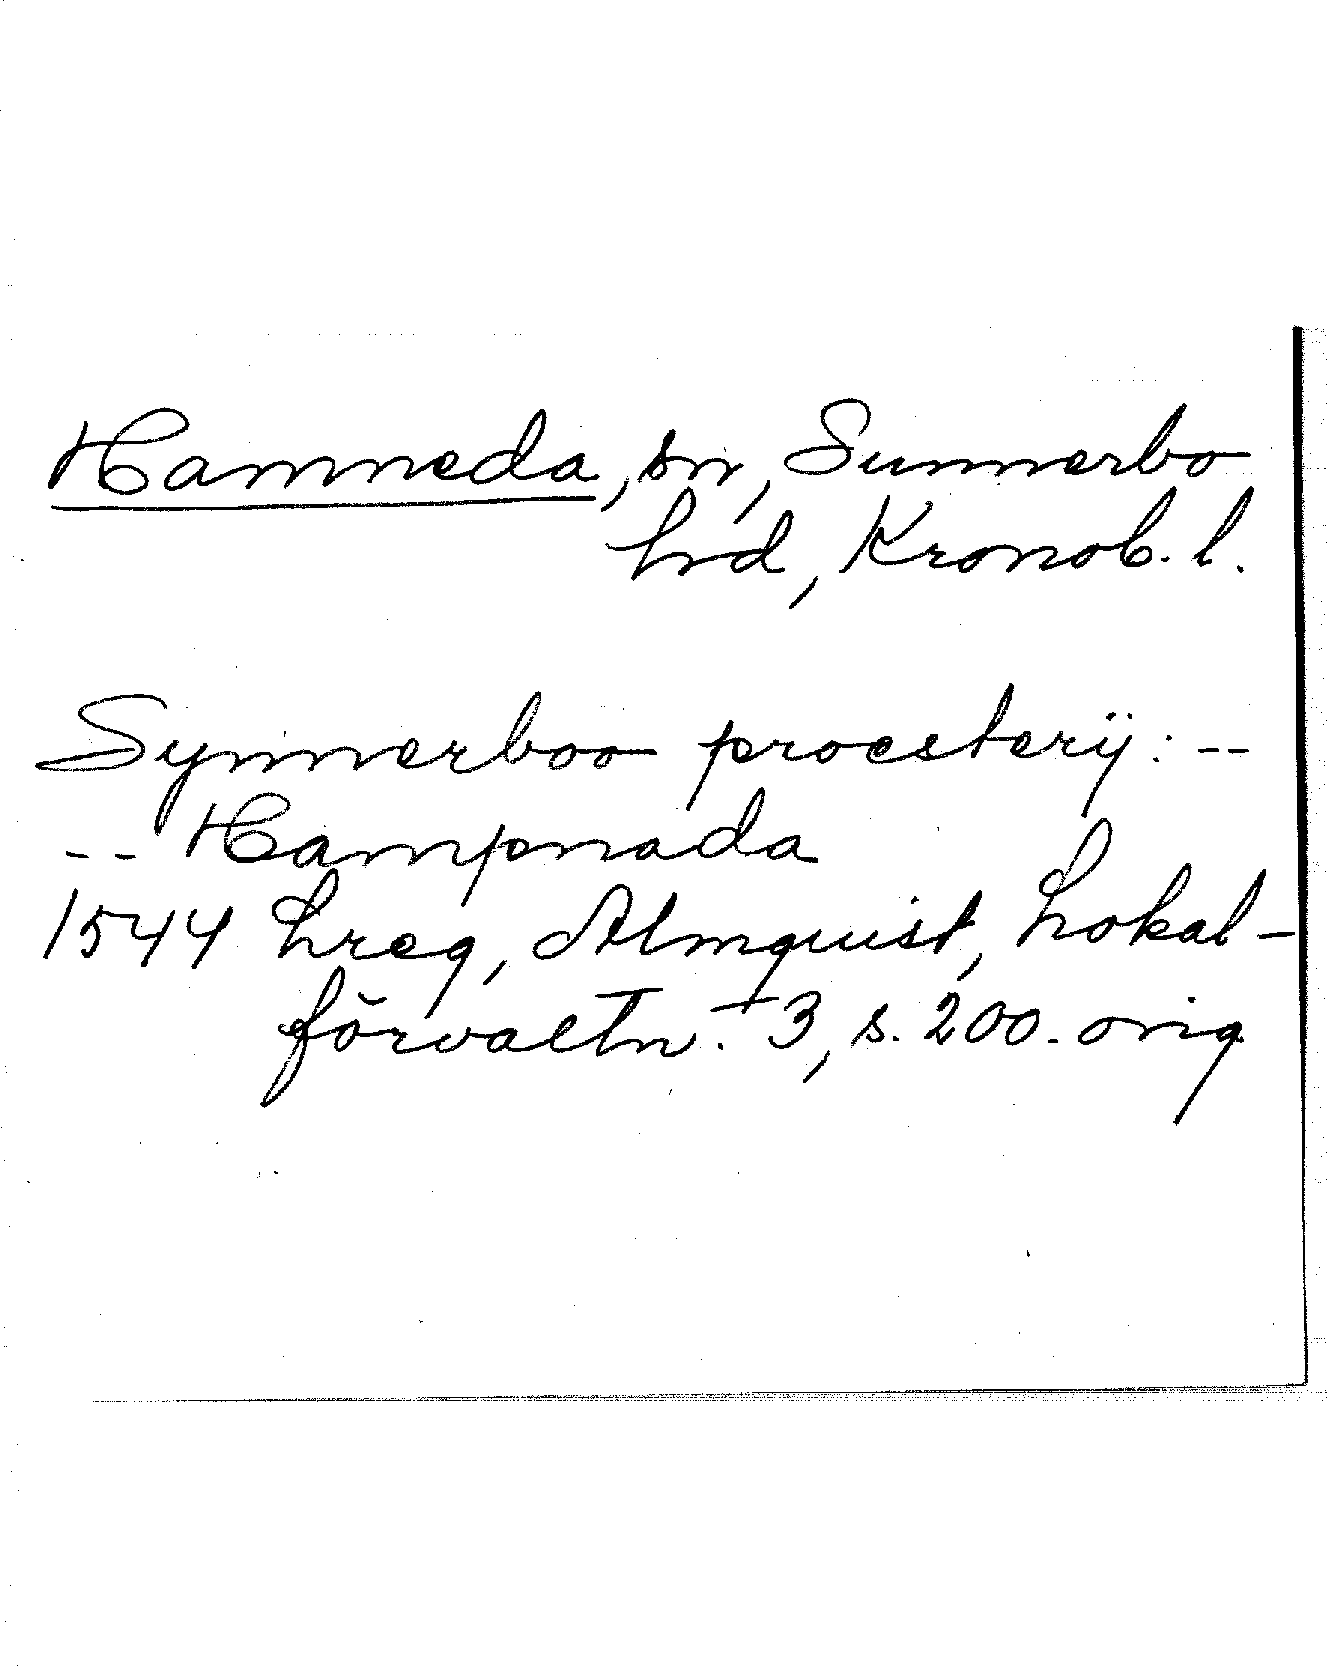 Hamneda, sn, Sunnerbo
hd, Kronob. l.
Synnerboo proesterÿ: --
-- Hampnada
1544 Lreg, Almquist, Lokal-
förvaltn. 3, s. 200. orig